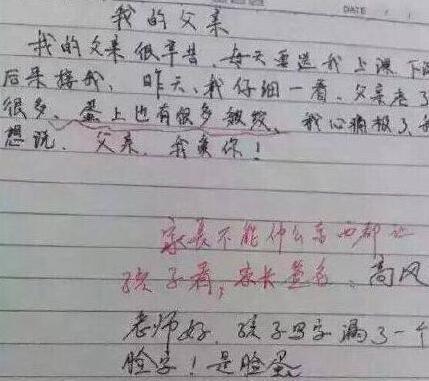 我的父亲
DATE
我的父亲很辛苦，每天要送我上课，下课
后来接我，昨天，我仔细一看，父亲老了
很多，蛋上也有很多皱纹，我心痛极了，我
想说，父亲，我爱你！
家长不能什么东西都让
孩子看，家长签名：高风
老师好，孩子写字漏了一个
脸字！是脸蛋